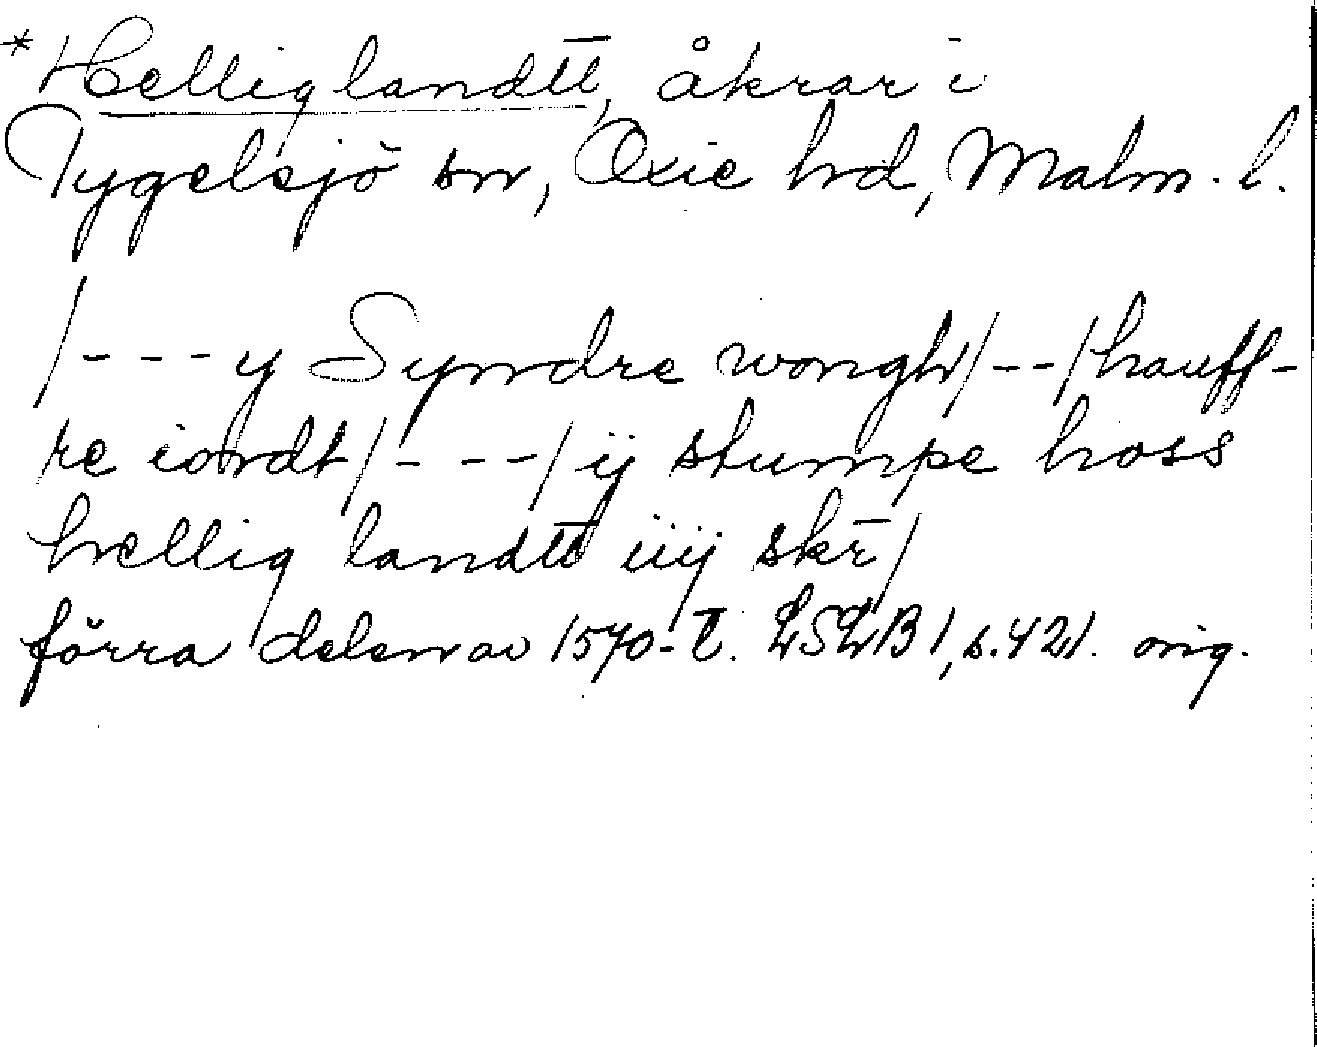 *Helliglandtt̄, åkrar i
Tygelsjö sn, Oxie hd, Malm. l.
/- - - y Syndre wongh/- -/hauff-
re iordt/- - - -/ ij stumpe hoss
hellig landtt̄ iiij skr̄/
förra delen av 1570-t. LSLB1, s. 421. orig.